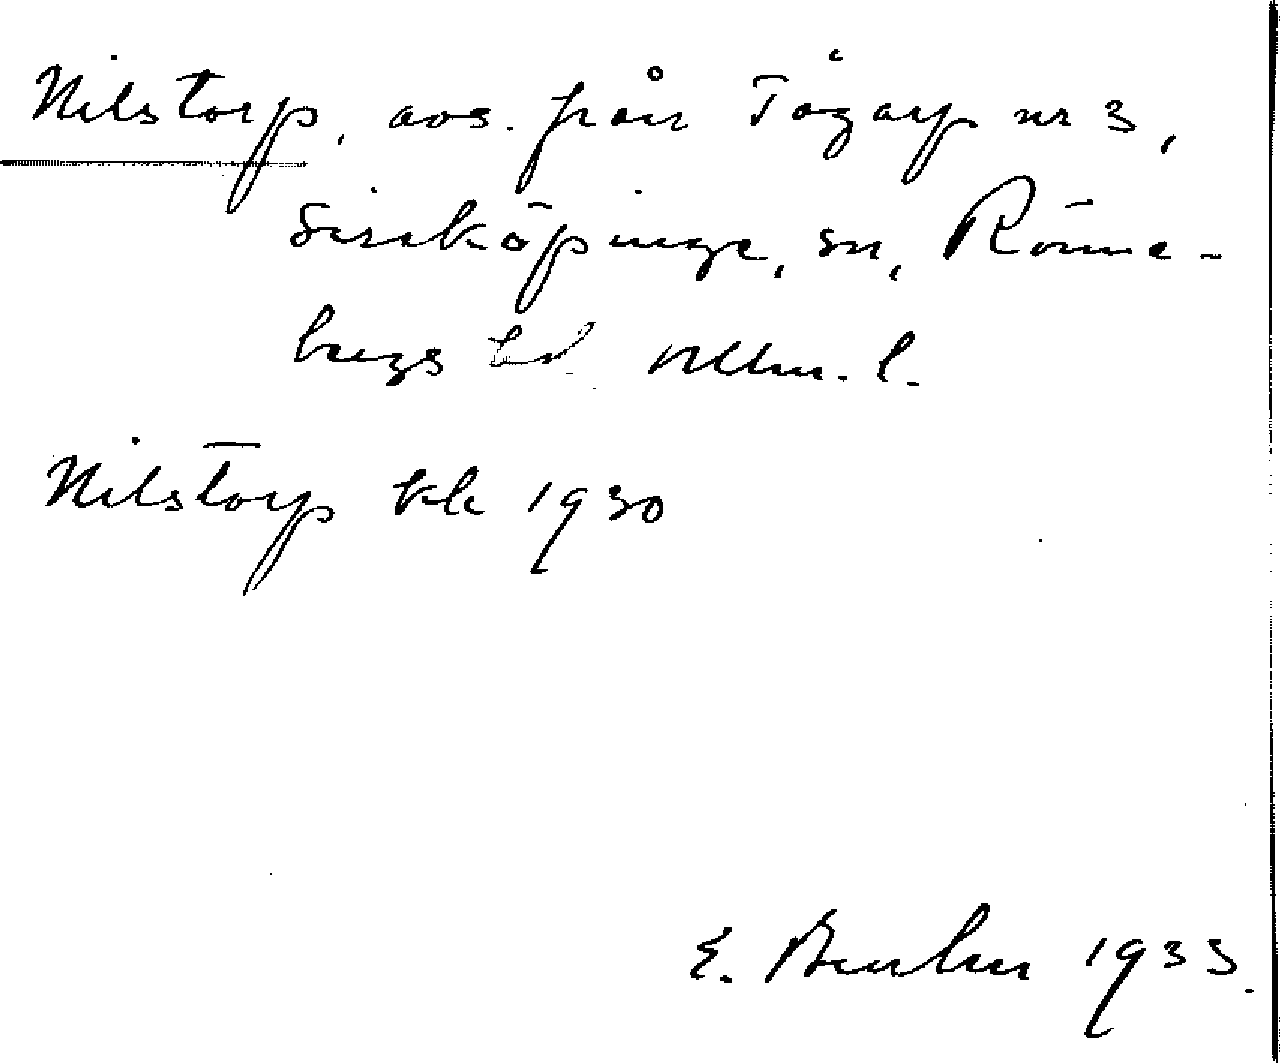 Nilstorp, avs. från Tågarp nr 3,
Sireköpinge, sn, Rönne-
bergs hd Mlm. l.
Nilstorp kk 1930
E. 1933.